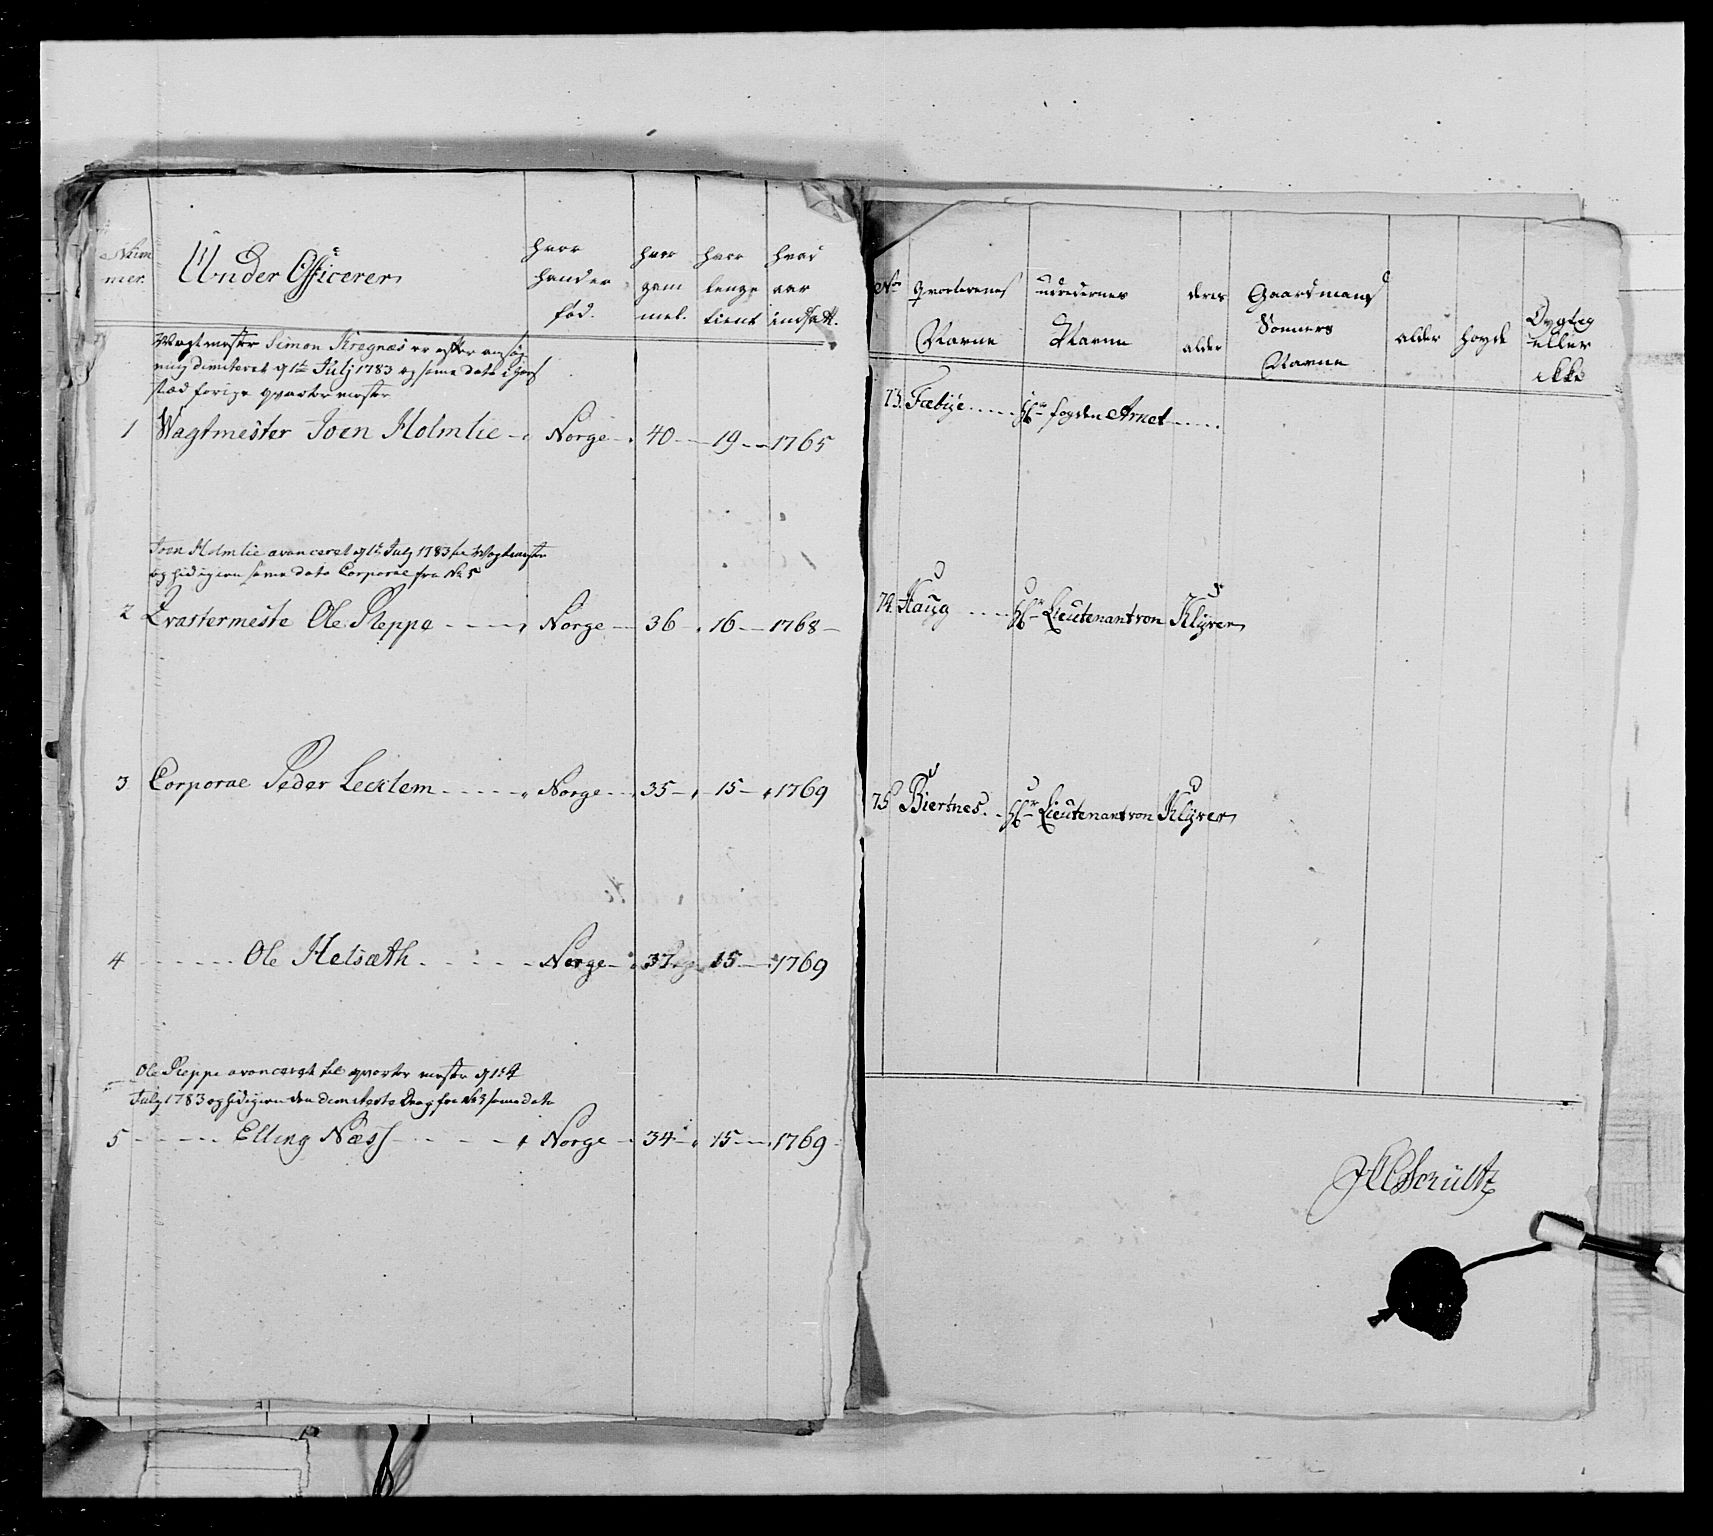 Num
mer.
Under Officerer
hvor
hand er
fød.
hvor
gam
mel.
hvor
lenge
tient
hvad
aar
indsatt.
Wagtmester Simon Kregnæs er efter ansøg
ning dimiteret d 1te Julj 1783 og samme dato i hans
stæd forige qvarter mester
1 Wagtmester Joen Holmlie Norge 40 19 1765
Joen Holmlie avanceret d 1te July 1783 til Wagtmester
og hid igien samme dato Corporal fra No 5
2 Qvartermeste Ole Reppe Norge 36 16 1768
3 Corporal Peder Lecklem Norge 35 15 1769
4 Ole Helsæth Norge 37 15 1769
Ole Reppe avanceret til qvarter mester d 1st
July 1783 og hid igien den dimiterte Drag fra No 3 samme dato
5 Elling Næss Norge 34 15 1769
No
Qvarterenes
Navne
udredernes
Navne
deres
alder
Gaardmans
Sønners
Navne
alder
høyde
Dygtig
eller
ikke
73. Fæbÿe Hr fogden Arnet
74. Haug Hr Lieutenant von Klÿver
75 Biertnes Hr Lieutenant von Klÿver